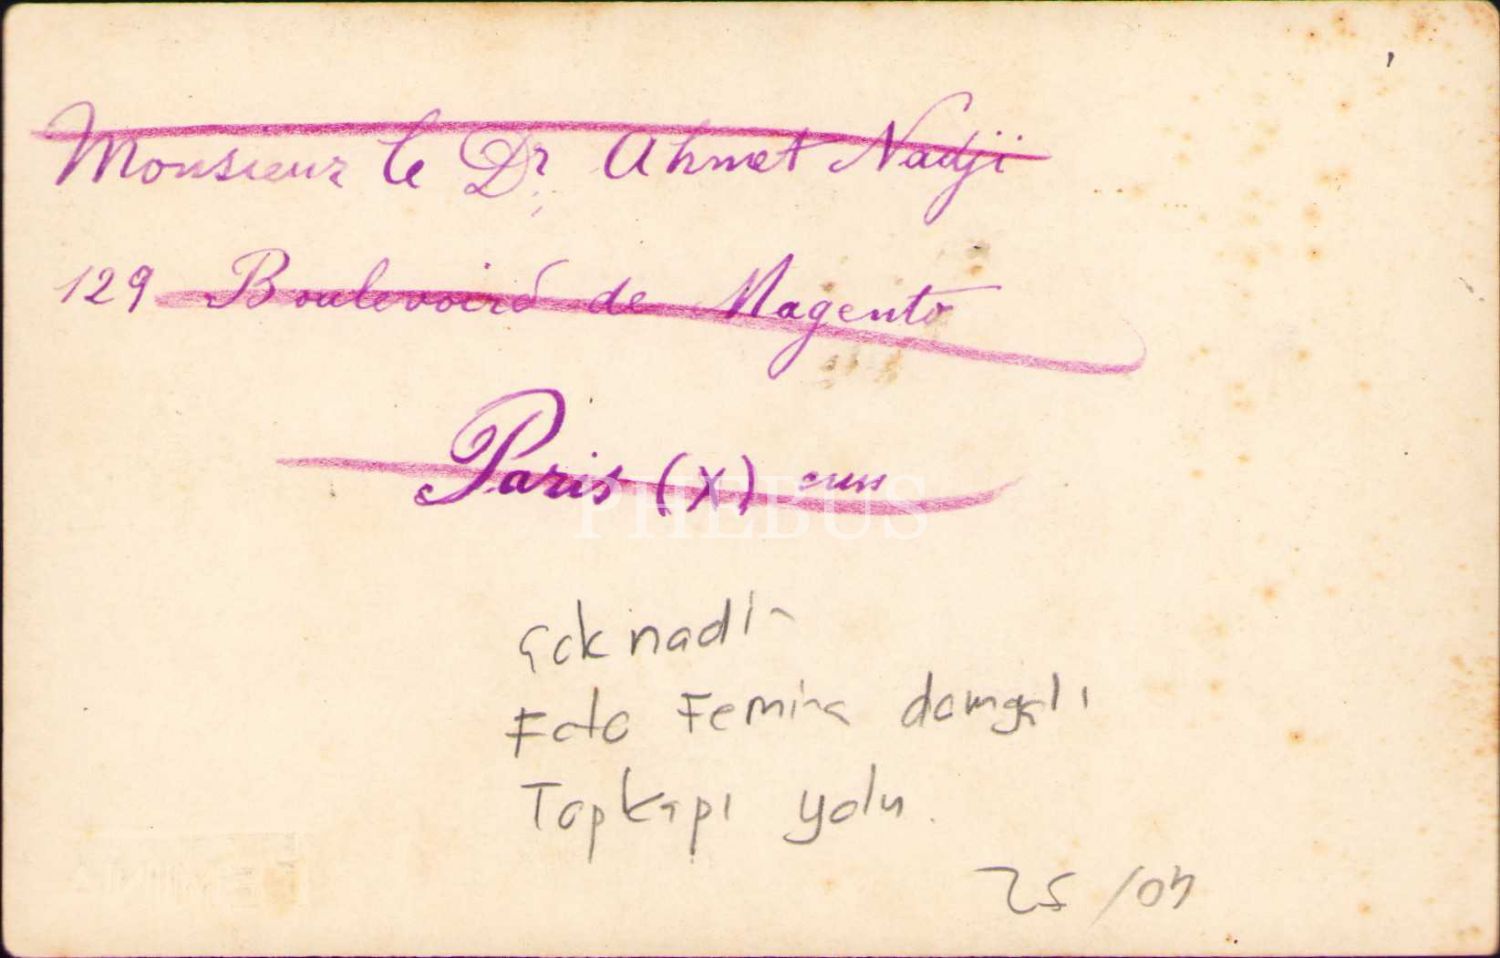 Monsieur le Dr Ahmet Nadji
129 Boulevoird de Magento
Paris (X)
PHEBUS
çok nadir
Foto Femina damgalı
Topkapı yolu.
25 /